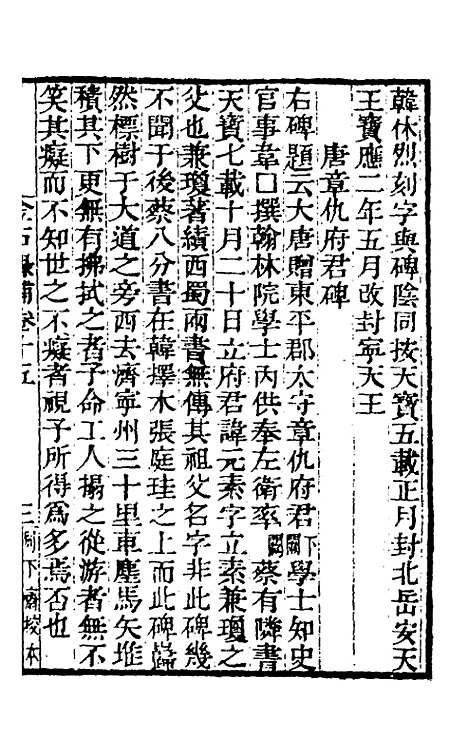 韓休烈刻字與碑陰同按天寶五載正月封北岳安天
王寶應二年五月改封寧天王
唐章仇府君碑
右碑題云大唐贈東平郡太守章仇府君下闕學士知史
官事韋囗撰翰林院學士內供奉左衛率闕蔡有隣書
天寶七載十月二十日立府君諱元素字立素兼瓊之
父也兼瓊著績西蜀兩書無傳其祖父名字非此碑幾
不聞于後蔡八分書在韓擇木張庭珪之上而此碑巋
然標樹于大道之旁西去濟寧州三十里車塵馬矢堆
積其下更無有拂拭之者予命工人搨之從游者無不
笑其癡而不知世之不癡者視予所得為多焉否也
金石錄補卷十五
三
別下齋校本